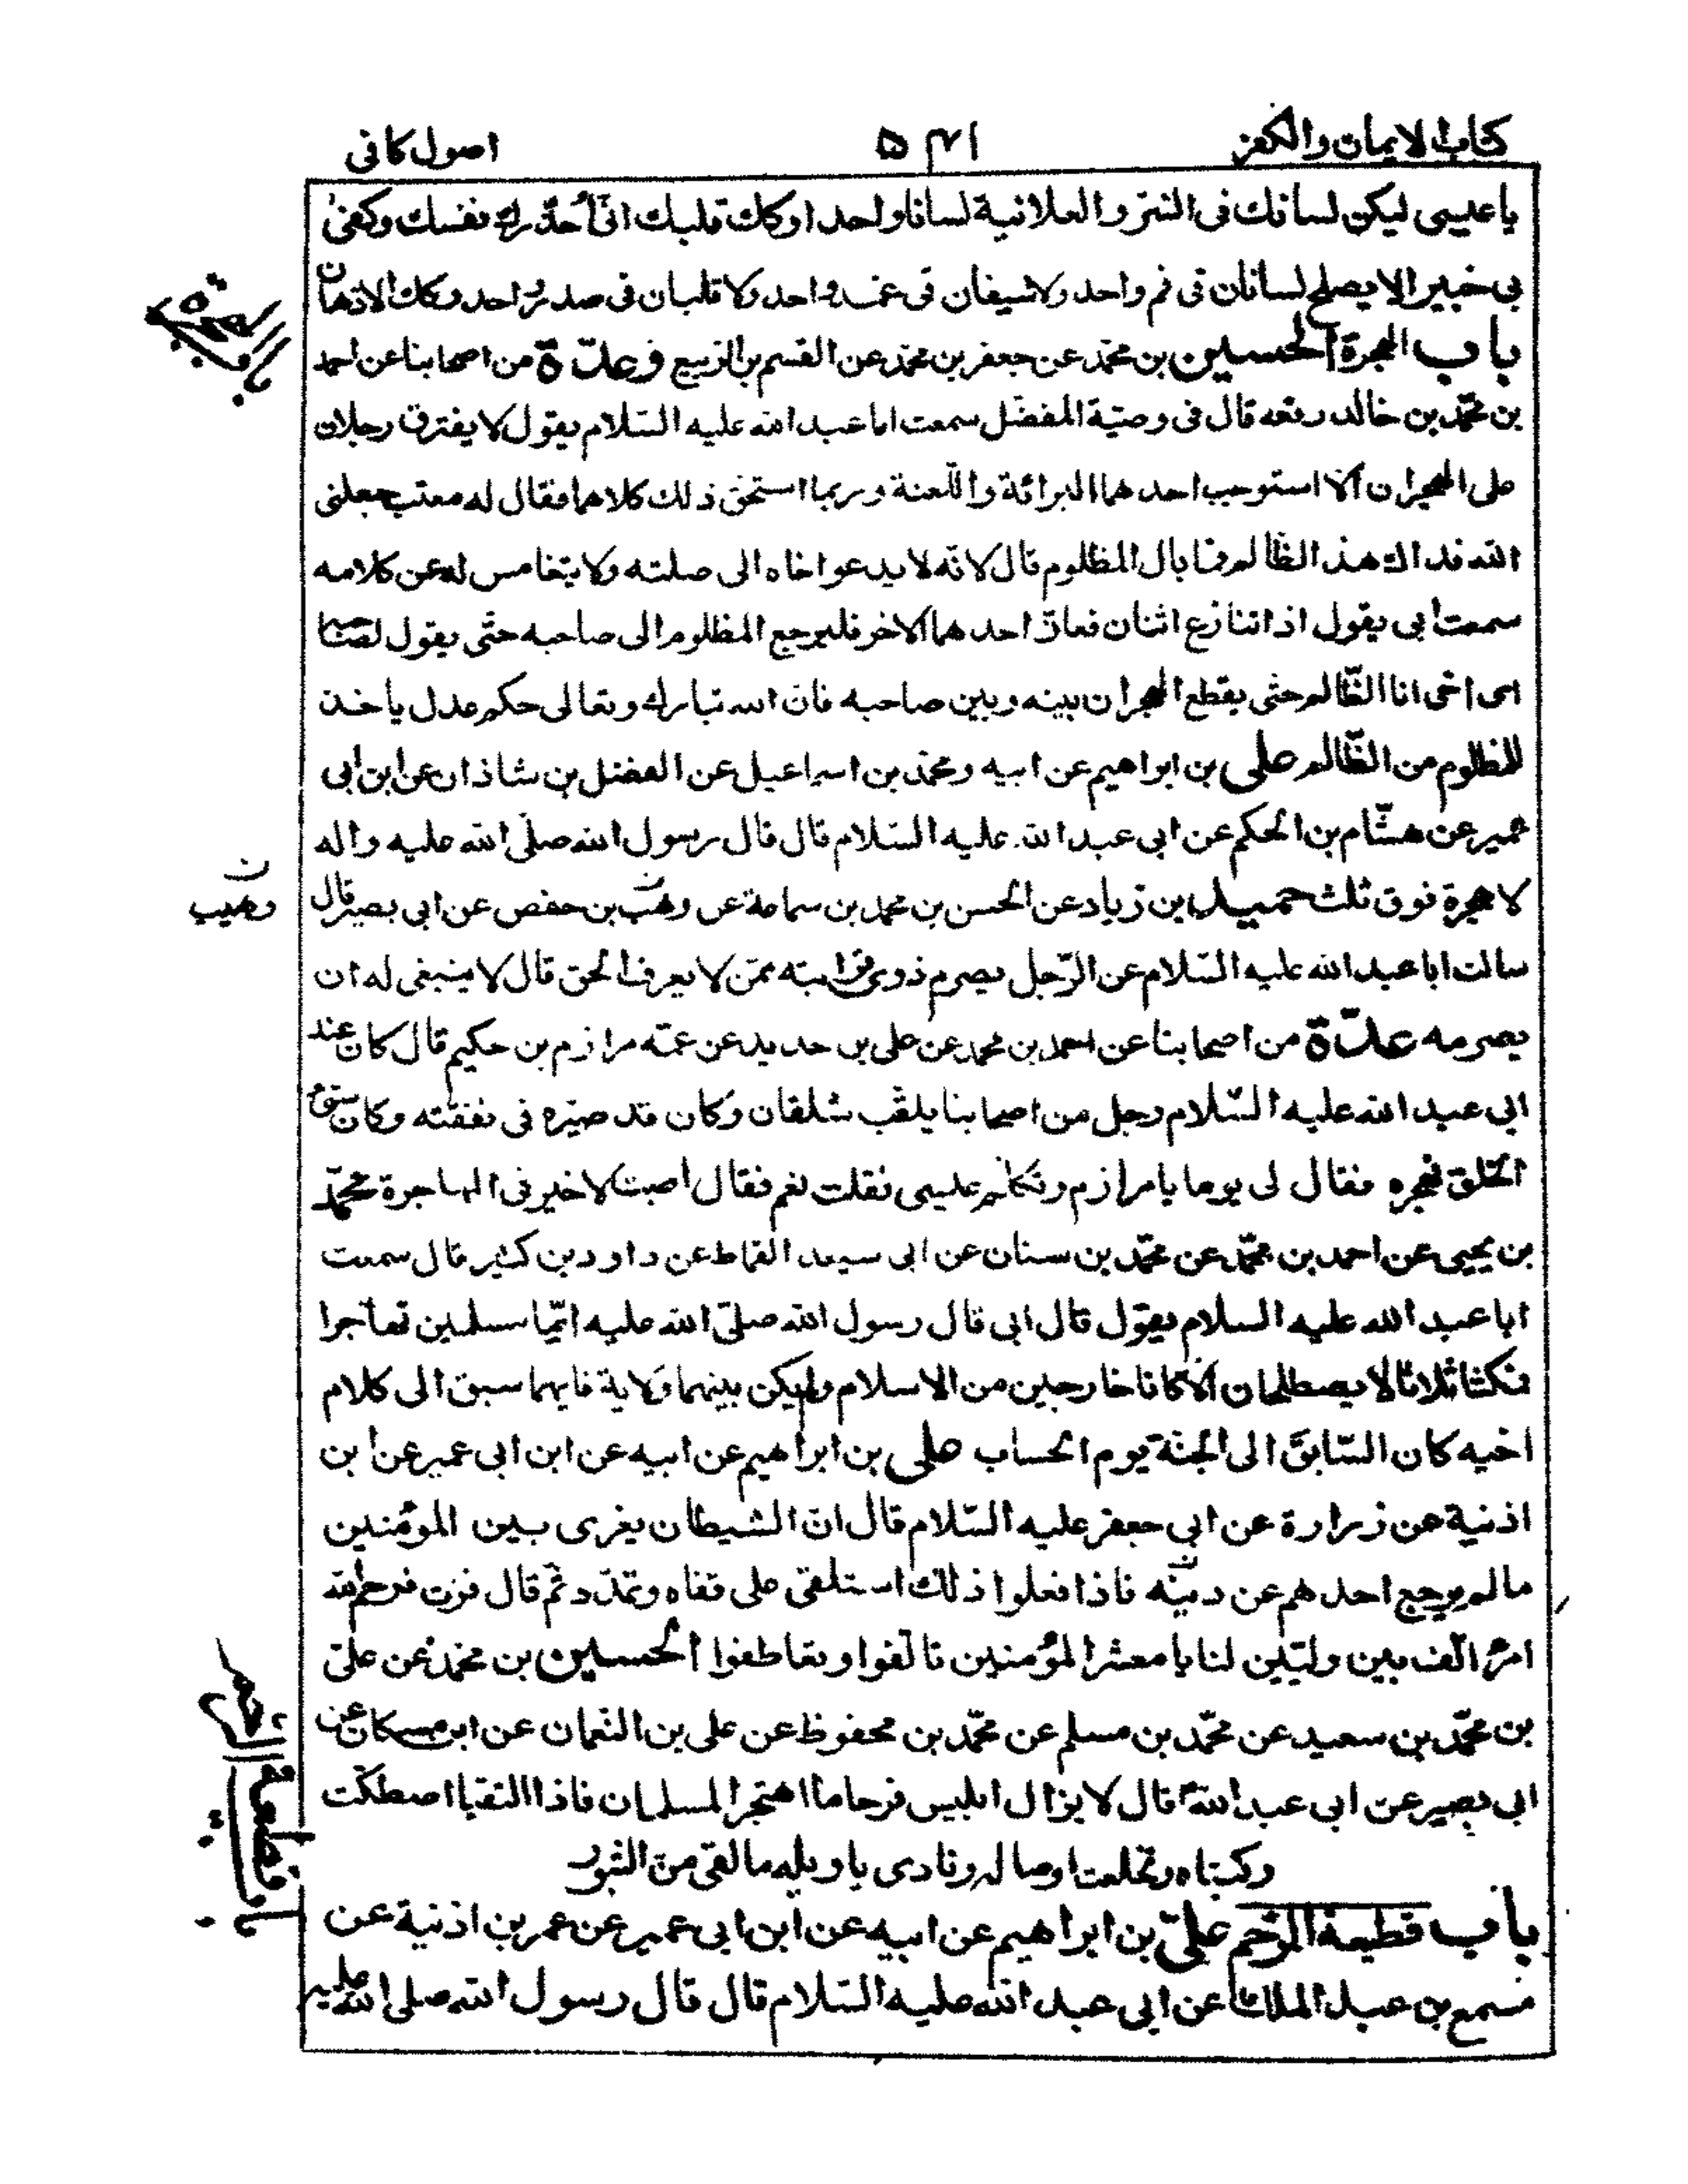 كتاب الايمان والكفر
۵۲۱
اصول كافى
ياعيسى ليكن لسانك فى السّر والعلانية لسانا واحدا وكك قلبك انّى أحذّرك نفسك وكفى
بى خبيرا لا يصلح لسانان فى فم واحد ولا سيفان فى غمد واحد ولا قلبان فى صدر واحد وكك الاذهان
باب الهجرة الحسين بن محمّد عن جعفر بن محمّد عن القسم بن الربيع وعدّة من اصحابنا عن احمد
بن محمّد بن خالد رفعه قال فى وصيّة المفضّل سمعت ابا عبد الله عليه السّلام يقول لا يفترق رجلان
على الهجران الّا استوجب احدهما البرائة واللّعنة وربما استحق ذلك كلاهما فقال له معتب جعلنى
الله فداك هذا الظالم فما بال المظلوم قال لانّه لا يدعوا خاه الى صلته ولا يتغامس له عن كلامه
سمعت ابى يقول اذا تنازع اثنان فعازّ احدهما الاخر فليرجع المظلوم الى صاحبه حتّى يقول لصاحبه
اى اخى انا الظّالم حتّى يقطع الهجران بينه وبين صاحبه فانّ الله تبارك وتعالى حكم عدل ياخذ
للمظلوم من الظّالم على بن ابراهيم عن ابيه ومحمّد بن اسماعيل عن الفضل بن شاذان عن ابن ابى
عمير عن هشّام بن الحكم عن ابى عبد الله عليه السّلام قال قال رسول الله صلّى الله عليه واله
لا هجرة فوق ثلث حميد بن زياد عن الحسن بن محمد بن سماعة عن وهب بن حفص عن ابى بصير قال
سالت ابا عبد الله عليه السّلام عن الرّجل يصرم ذوى قرابته ممّن لا يعرف الحق قال لا ينبغى له ان
يصرمه عدّة من اصحابنا عن احمد بن محمد عن على بن حديد عن عمّه مرازم بن حكيم قال كان عند
ابى عبد الله عليه السّلام رجل من اصحابنا يلقّب شلقان وكان قد صيّره فى نفقته وكان سيّئ
الخلق فهجره فقال لى يوما يا مرازم وتكلّم عيسى فقلت نعم فقال اصبت لا خير فى المهاجرة محمّد
بن يحيى عن احمد بن محمّد عن محمّد بن سنان عن ابى سعيد القماط عن داود بن كثير قال سمعت
ابا عبد الله عليه السلام يقول قال ابى قال رسول الله صلّى الله عليه ايّما مسلمين تهاجرا
فمكثا ثلاثا لا يصطلحان الّا كانا خارجين من الاسلام ولم يكن بينهما ولاية فايهما سبق الى كلام
اخيه كان السّابق الى الجنّة يوم الحساب على بن ابراهيم عن ابيه عن ابن ابى عمير عن ابن
اذنية عن زرارة عن ابى جعفر عليه السّلام قال انّ الشيطان يغرى بين المؤمنين
ما لم يرجع احدهم عن دينه فاذا فعلوا ذلك استلقى على قفاه وتمدّد ثمّ قال فزت فرحم الله
امرءا الّف بين وليّين لنا يا معشر المؤمنين تالّفوا وتعاطفوا الحسين بن محمّد عن علىّ
بن محمّد بن سعيد عن محمّد بن مسلم عن محمّد بن محفوظ عن على بن النّعمان عن ابن مسكان عن
ابى بصير عن ابى عبد الله ع قال لا يزال ابليس فرحا ما اهتجر المسلمان فاذا التقيا اصطكّت
ركبتاه وتخلعت اوصاله ونادى يا ويله ما لقى من الثبور
باب قطيعة الرّحم علىّ بن ابراهيم عن ابيه عن ابن ابى عمير عن عمر بن اذنية عن
مسمع بن عبد الملك عن ابى عبد الله عليه السّلام قال قال رسول الله صلى الله عليه
باب الهجرة
ن
وهيب
باب قطيعة الرّحم